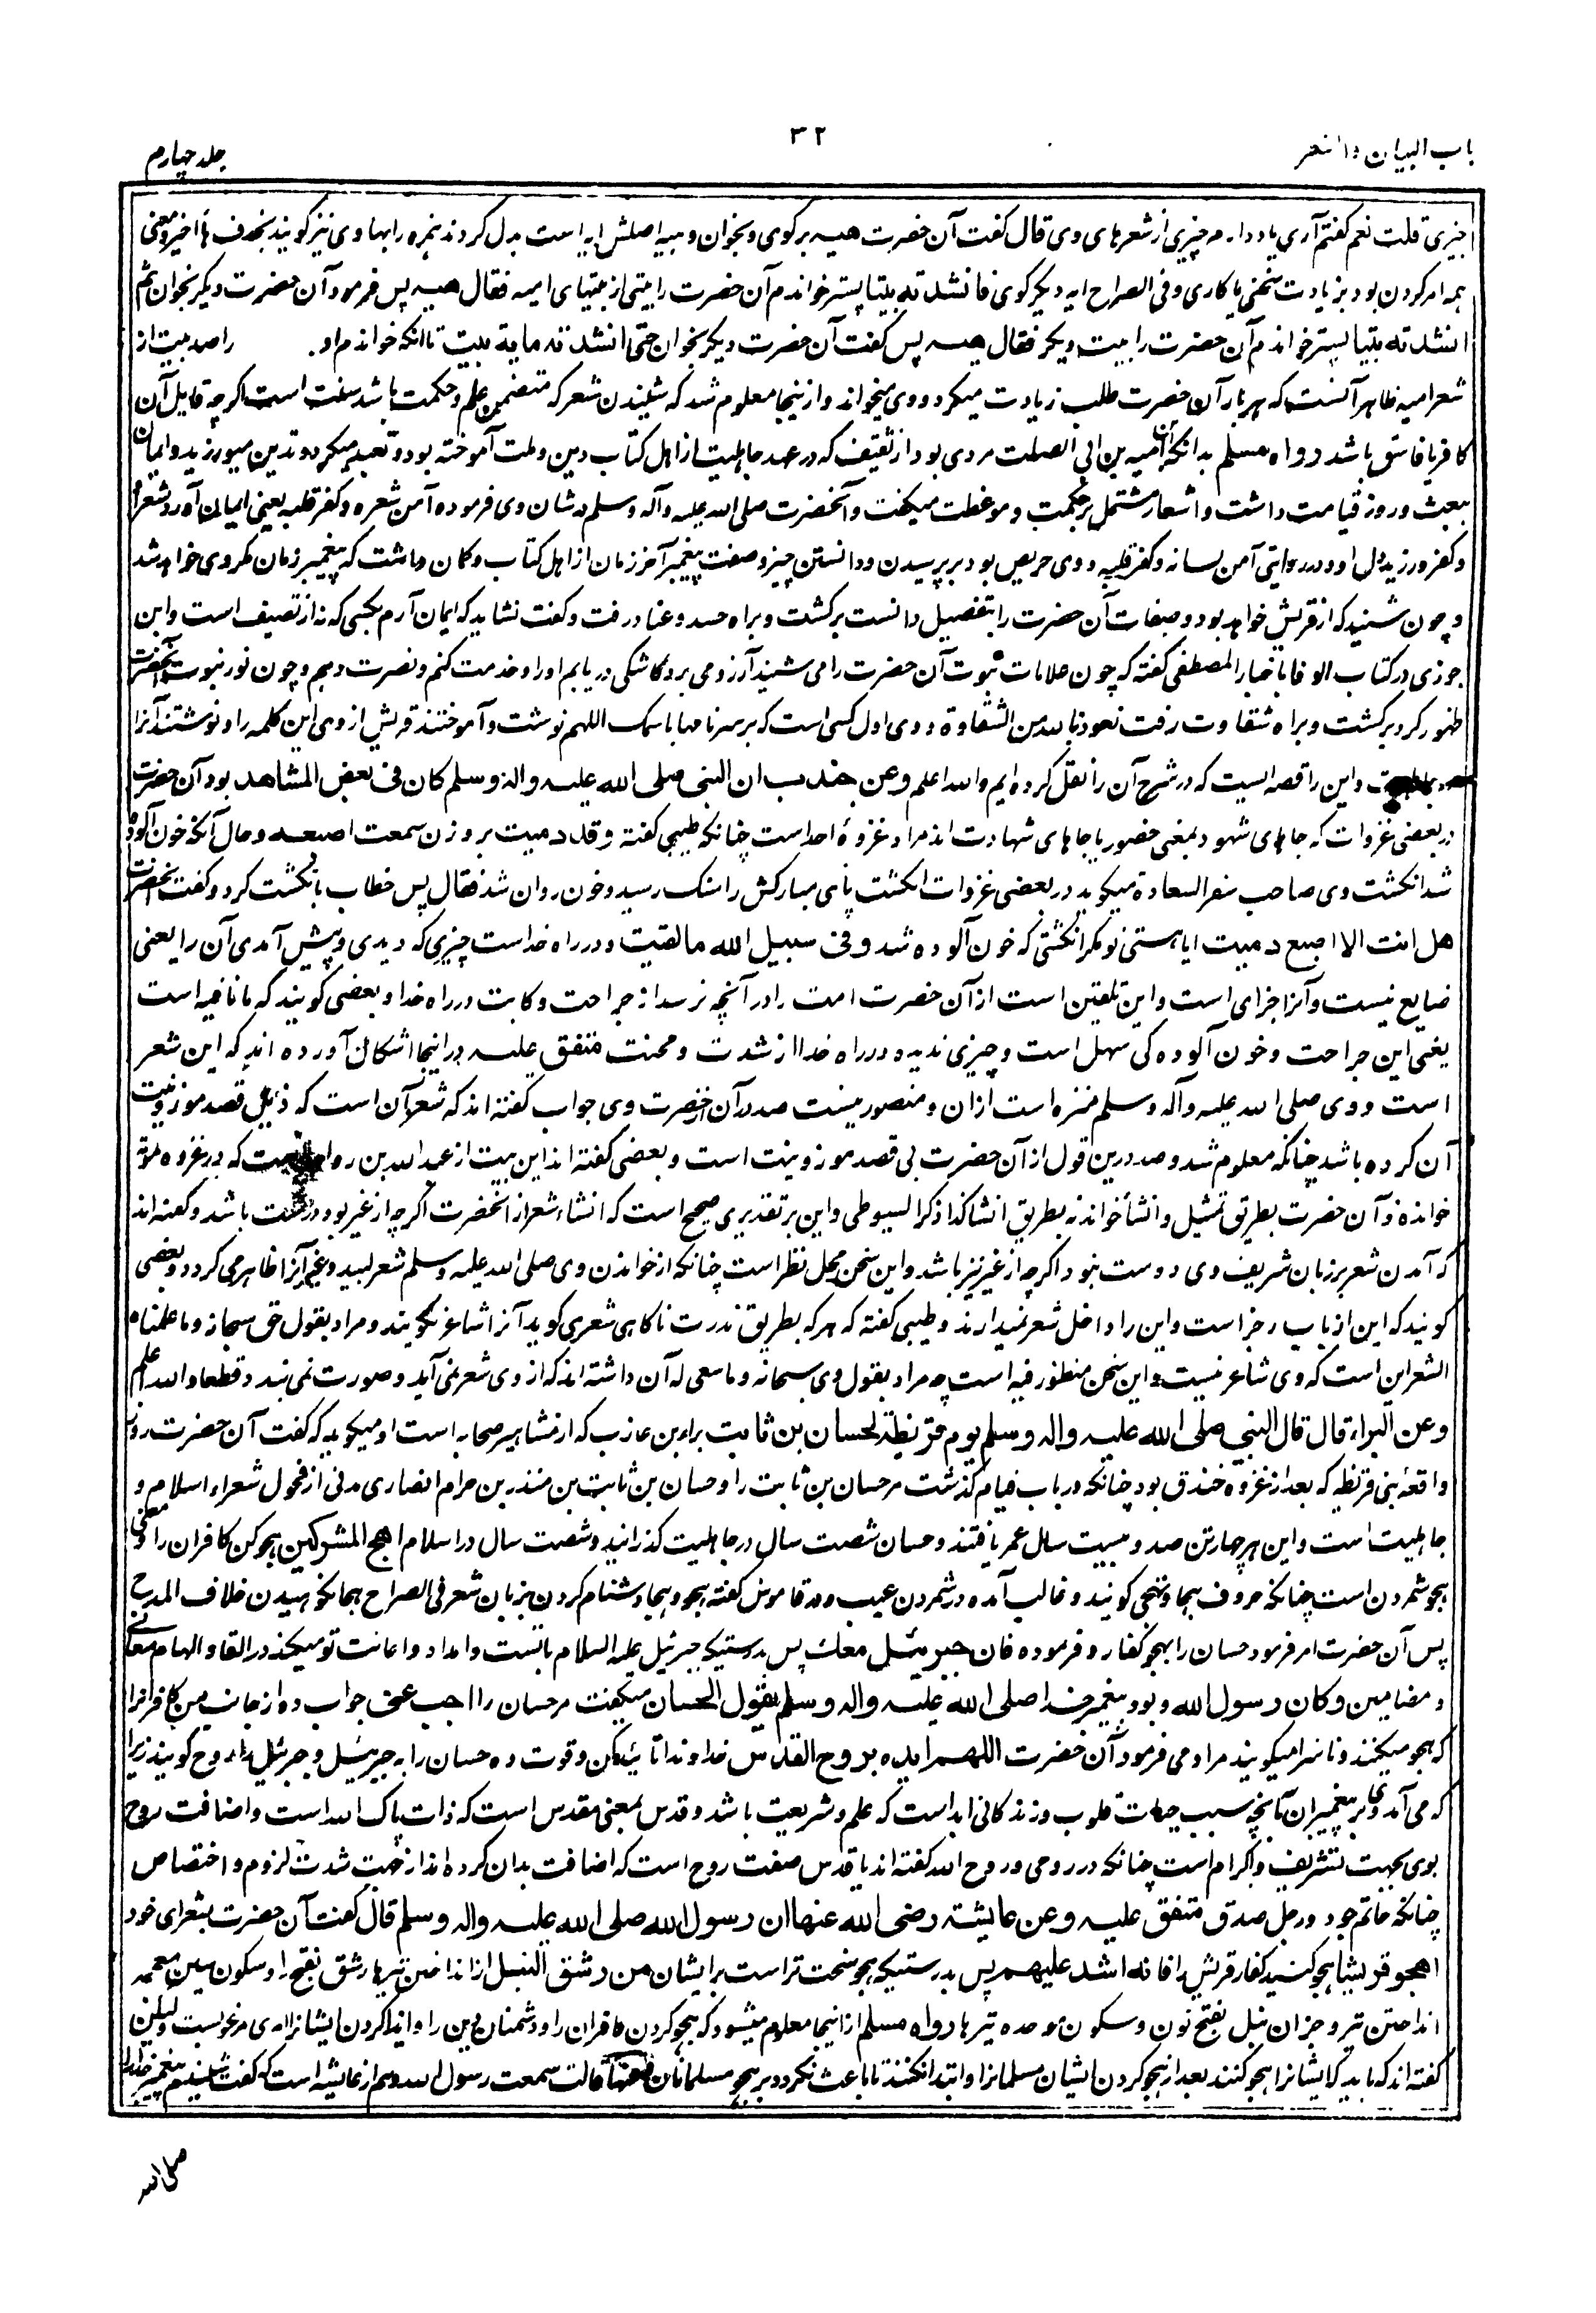 باب البیان والشعر
۳۲
جلد چهارم
چیزی قلت نعم گفتم آری یاد دارم چیزی از شعرهای وی قال گفت آن حضرت هیه برگوی و بخوان و هیه اصلش ایه است بدل کردند همزه را بها و وی نیز گویند بحذف ها اخیر و معنی
همه امر کردن بود بزیادت سخنی یا کاری و فی الصراح ایه دیگر گوی فانشدته بیتا پستر خواندم آن حضرت را بیتی از بیتهای امیه فقال هیه پس فرمود آن حضرت دیگر بخوان ثم
انشدته بیتا پستر خواندم آن حضرت را بیت دیگر فقال هیه پس گفت آن حضرت دیگر بخوان حتی انشدته مایة بیت تا آنکه خواندم او را صد بیت از
شعر امیه ظاهر آنست که هر بار آن حضرت طلب زیادت میکرد و وی میخواند و ازینجا معلوم شد که شنیدن شعر که متضمن علم و حکمت باشد سنت است اگرچه قایل آن
کافر یا فاسق باشد رواه مسلم بدانکه امیه بن ابی الصلت مردی بود از ثقیف که در عهد جاهلیت از اهل کتاب دین و ملت آموخته بود و تعبد میکرد و تدین میورزید و ایمان
ببعث و روز قیامت داشت و اشعار مشتمل بر حکمت و موعظت میگفت و آنحضرت صلی الله علیه وآله وسلم در شان وی فرموده آمن شعره و کفر قلبه یعنی ایمان آورد شعر او
و کفر ورزید دل او و در روایتی آمن لسانه و کفر قلبه و وی حریص بود بر پرسیدن و دانستن چیز و صفت پیغمبر آخر زمان از اهل کتاب و گمان داشت که پیغمبر زمان مگر وی خواهد شد
و چون شنید که از قریش خواهد بود و صفات آن حضرت را بتفصیل دانست برگشت و براه حسد و عناد رفت و گفت نشاید که ایمان آرم بکسی که نه از ثقیف است و ابن
جوزی در کتاب الوفا باخبار المصطفی گفته که چون علامات نبوت آن حضرت را می شنید آرزو می برد کاشکی دریابم او را و خدمت کنم و نصرت دهم و چون نور نبوت آنحضرت
ظهور کرد برگشت و براه شقاوت رفت نعوذ بالله من الشقاوة و وی اول کسی است که بر سر نامها باسمک اللهم نوشت و آموختند قریش از وی این کلمه را و نوشتند آنرا
و این را قصه ایست که در شرح آن را نقل کرده ایم والله اعلم وعن جندب ان النبی صلی الله علیه واله وسلم کان فی بعض المشاهد بود آن حضرت
در بعضی غزوات که جاهای شهود بمعنی حضور یا جاهای شهادت اند مراد غزوهٔ احد است چنانکه طیبی گفته وقد دمیت بر وزن سمعت اصبعه و حال آنکه خون آلوده
شد انگشت وی صاحب سفر السعادة میگوید در بعضی غزوات انگشت پای مبارکش را سنگ رسید و خون روان شد فقال پس خطاب بانگشت کرد و گفت آنحضرت
هل انت الا اصبع دمیت ایا هستی تو مگر انگشتی که خون آلوده شد وفی سبیل الله ما لقیت و در راه خداست چیزی که دیدی و پیش آمدی آن را یعنی
ضایع نیست و آنرا جزای است و این تلقین است از آن حضرت امت را در آنچه برسد از جراحت و کابت در راه خدا و بعضی گویند که ما نافیه است
یعنی این جراحت و خون آلوده گی سهل است و چیزی ندیده در راه خدا از شدت و محنت متفق علیه در اینجا اشکال آورده اند که این شعر
است و وی صلی الله علیه وآله وسلم منزه است ازان و متصور نیست صدور آن از حضرت وی جواب گفته اند که شعر آن است که قصد موزونیت
آن کرده باشد چنانکه معلوم شد و صدور این قول از آن حضرت بی قصد موزونیت است و بعضی گفته اند این بیت از عبد الله بن رواحه است که در غزوه موته
خوانده و آن حضرت بطریق تمثیل و انشاد خواند نه بطریق انشا کذا ذکر السیوطی و این بر تقدیری صحیح است که انشاد شعر از آنحضرت اگرچه از غیر بود درست باشد و گفته اند
که آمدن شعر بر زبان شریف وی درست نبود اگرچه از غیر نیز باشد و این سخن محل نظر است چنانکه از خواندن وی صلی الله علیه وسلم شعر لبید و غیر آنرا ظاهر می گردد و بعضی
گویند که این از باب رجز است و این را داخل شعر نمیدارند و طیبی گفته که هر که بطریق ندرت ناگاهی شعری گوید آنرا شاعر نگویند و مراد بقول حق سبحانه وما علمناه
الشعر این است که وی شاعر نیست و این سخن منظور فیه است چه مراد بقول وی سبحانه وما ینبغی له آن داشته اند که از وی شعر نمی آید و صورت نمی بندد قطعا والله اعلم
وعن البراء قال قال النبی صلی الله علیه واله وسلم یوم قریظة لحسان بن ثابت براء بن عازب که از مشاهیر صحابه است او میگوید که گفت آن حضرت روز
واقعهٔ بنی قریظه که بعد از غزوه خندق بود چنانکه در باب قیام گذشت مر حسان بن ثابت را و حسان بن ثابت بن منذر بن حرام انصاری مدنی از فحول شعراء اسلام و
جاهلیت است و این هر چهار تن صد و بیست سال عمر یافتند و حسان شصت سال در جاهلیت گذرانید و شصت سال در اسلام اهج المشرکین هجو کن کافران را و معنی
هجو شمردن است چنانکه حروف هجا و تهجی گویند و غالب آمده در شمردن عیب و در قاموس گفته هجو و هجا دشنام کردن بزبان شعر فی الصراح هجا نکوهیدن خلاف المدح
پس آن حضرت امر فرمود حسان را بهجو کفار و فرموده فان جبرئیل معک پس بدرستیکه جبرئیل علیه السلام با تست و امداد و اعانت تو میکند در القا و الهام معانی
و مضامین وکان رسول الله و بود پیغمبر خدا صلی الله علیه واله وسلم یقول لحسان میگفت مر حسان را اجب عنی جواب ده از جانب من کافرانرا
که هجو میکنند و ناسزا میگویند مرا و می فرمود آن حضرت اللهم ایده بروح القدس خداوندا تائید کن و قوت ده حسان را به جبرئیل و جبرئیل را روح گویند زیرا
که می آمد وی بر پیغمبران بآنچه سبب حیات قلوب و زندگانی ابد است که علم و شریعت باشد و قدس بمعنی مقدس است که ذات پاک الله است و اضافت روح
بوی بجهت تشریف و اکرام است چنانکه در روحی و روح الله گفته اند یا قدس صفت روح است که اضافت بدان کرده اند از جهت شدت لزوم و اختصاص
چنانکه حاتم جود و رجل صدق متفق علیه وعن عایشة رضی الله عنها ان رسول الله صلی الله علیه واله وسلم قال گفت آن حضرت بشعرای خود
اهجو قریشا هجو کنید کفار قریش را فانه اشد علیهم پس بدرستیکه هجو سخت تر است بر ایشان من رشق النبل از انداختن تیرها رشق بفتح را و سکون شین معجمه
انداختن تیر و جز آن نبل بفتح نون و سکون موحده تیرها رواه مسلم از اینجا معلوم میشود که هجو کردن کافران را و دشمنان دین را و ایذا کردن ایشانرا امری مرغوبست ولیکن
گفته اند که باید که ایشانرا هجو کنند بعد از هجو کردن ایشان مسلمانرا و ابتدا نکنند تا باعث نگردد بر هجو مسلمانان وعنها قالت سمعت رسول الله و هم از عایشه است که گفت شنیدم پیغمبر خدا را
صلی الله